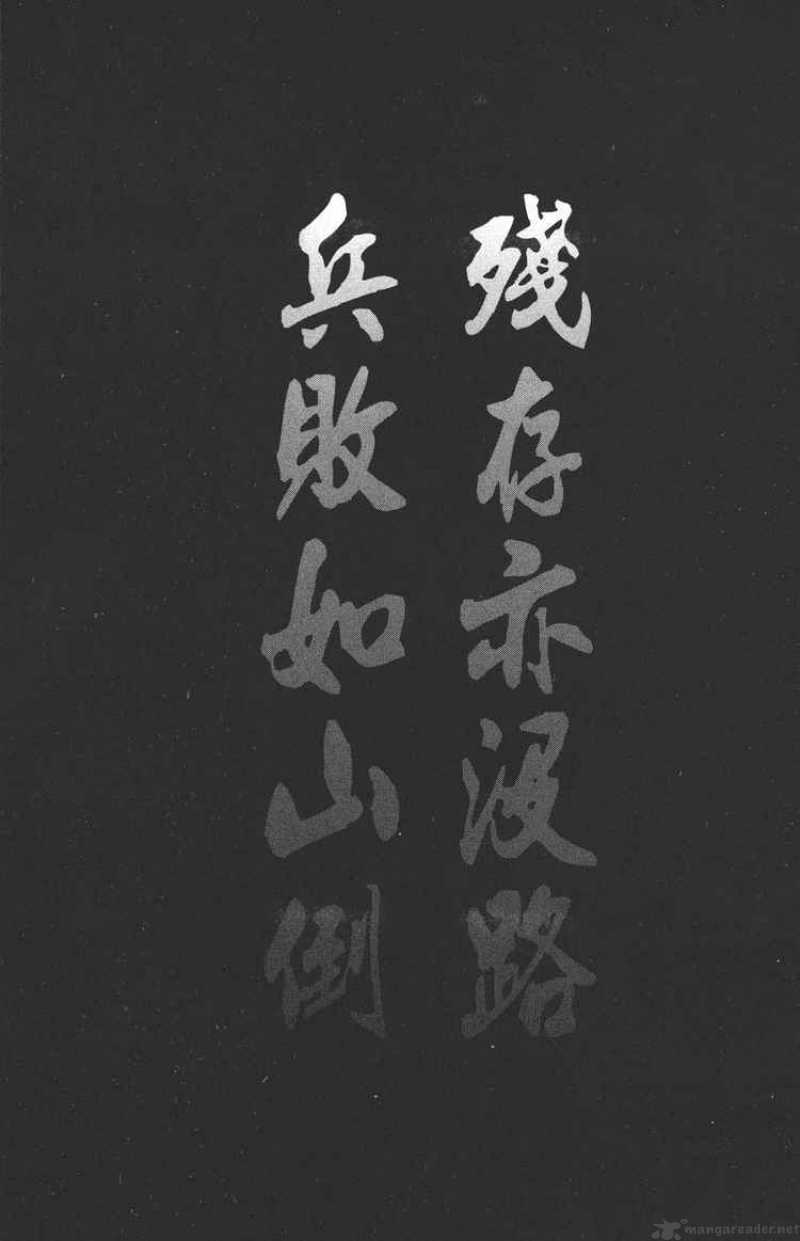 殘存亦沒路
兵敗如山倒
mangareader.net